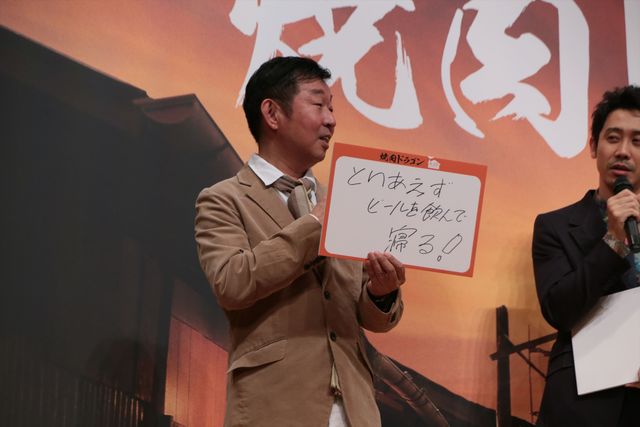 焼肉
焼肉ドラゴン
とりあえず
ビールを飲んで
寝る！